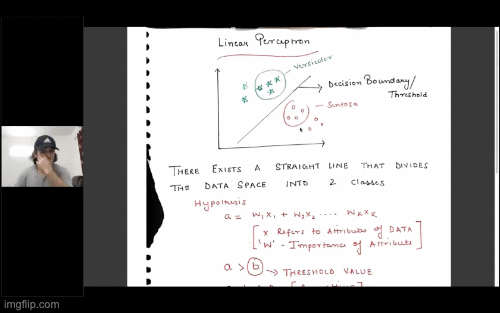 Linear Perceptron
Versicolor
Decision Boundary/
Threshold
THERE EXISTS A STRAIGHT LINE THAT DIVIDES
THE DATA SPACE INTO 2 classes
Hypothesis
a = W₁X₁ + W₂X₂ .... WₖXₖ
[ X Refers to Attributes of DATA
'W' - Importance of Attribute ]
a > b → THRESHOLD VALUE
imgflip.com